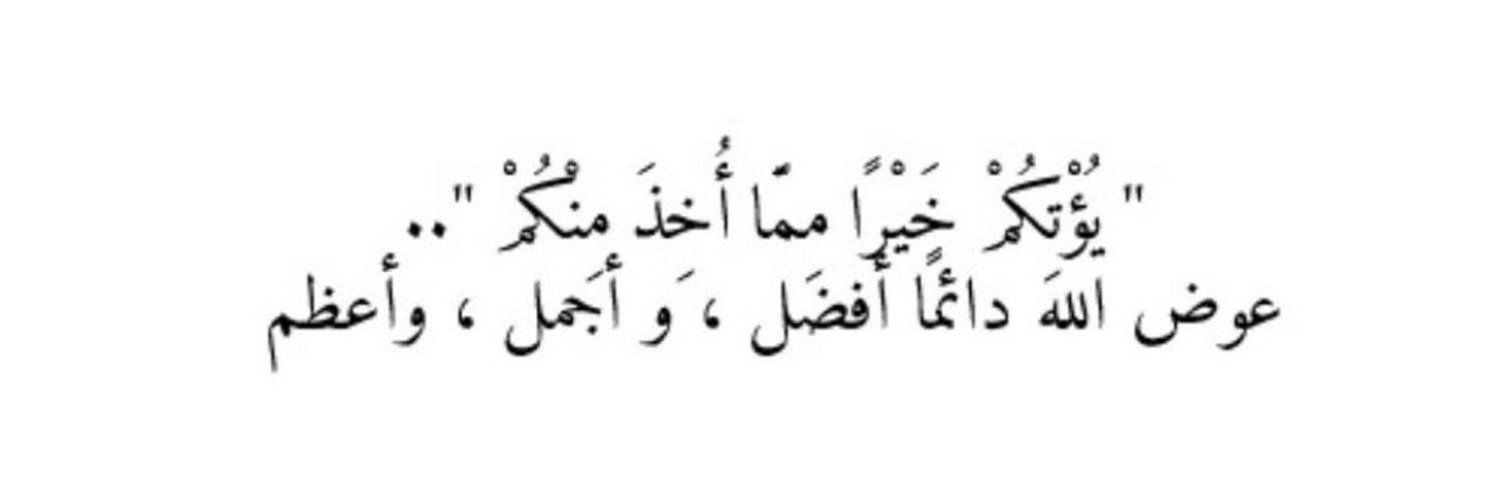 " يُؤْتكُمْ خَيْرًا ممّا أُخذَ منْكُمْ "..
عوض اللهَ دائمًا أفضَل ، وَ أجَمل ، وأعظم